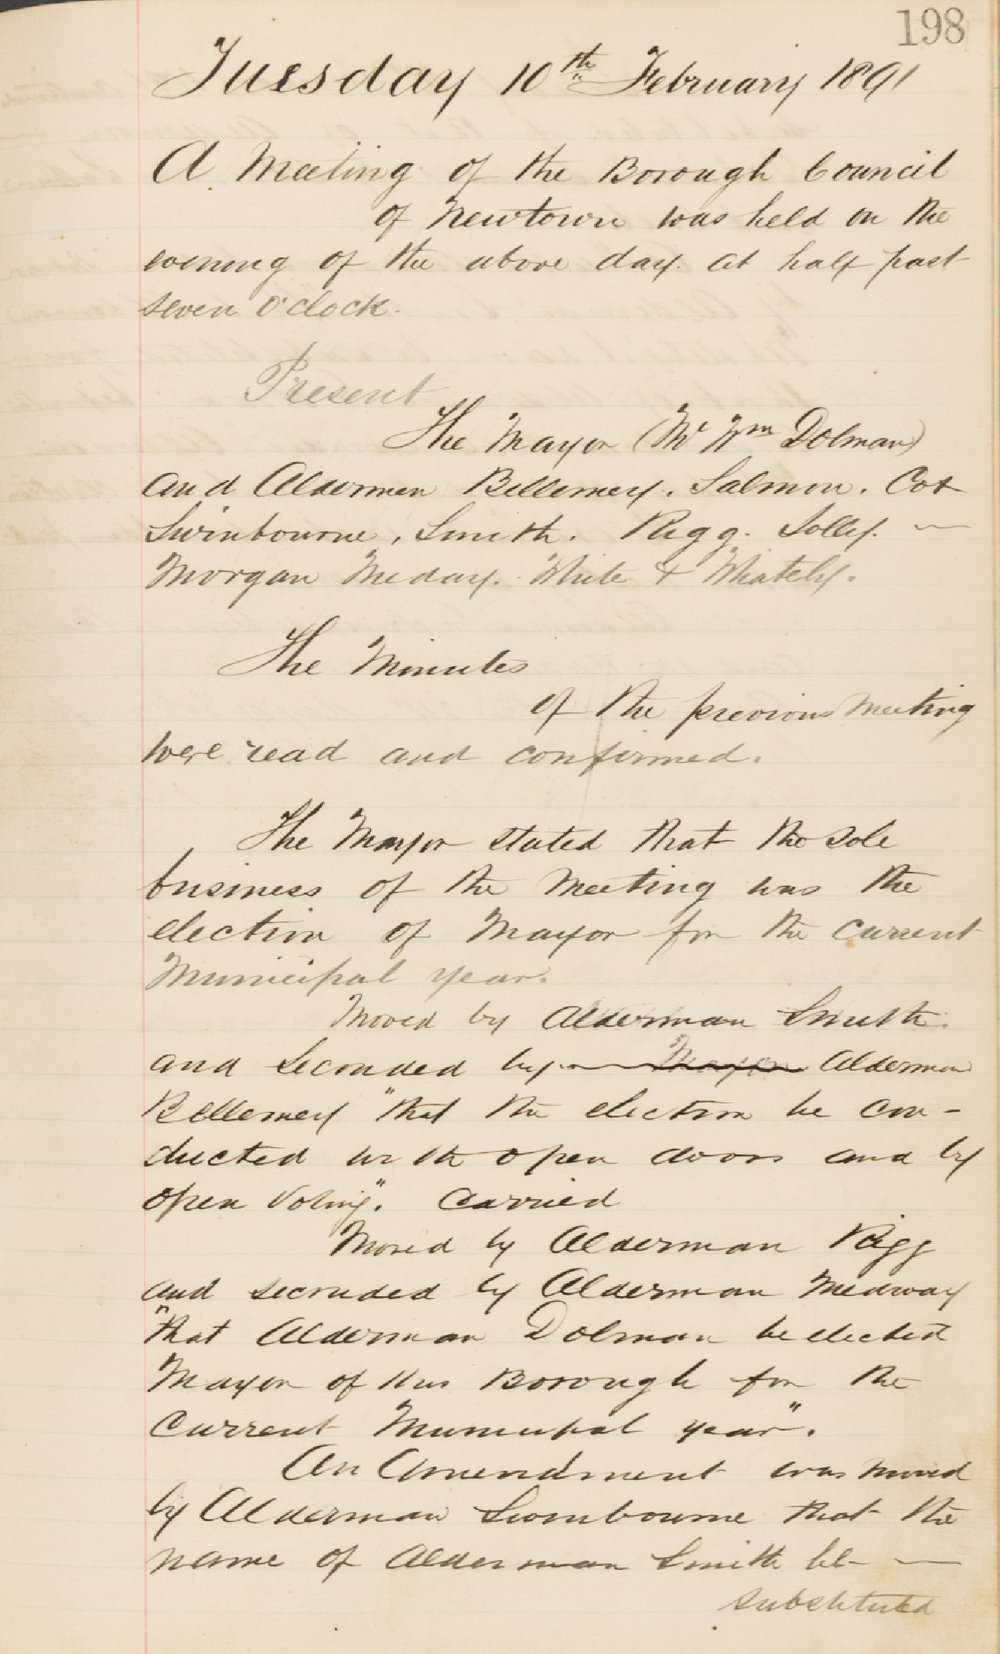 198
Tuesday 10th February 1891
A Meeting of the Borough Council
of Newtown was held on the
evening of the above day at half past
seven O'clock.
Present
The Mayor (Mr Wm Dolman)
and Aldermen Bellemey, Salmon, Cox
Swinbourne, Smith. Rigg. Jolly. —
Morgan Meday. White & Whately.
The Minutes
of the previous Meeting
were read and confirmed.
The Mayor stated that the sole
business of the Meeting was the
election of Mayor for the current
Municipal year.
Moved by Alderman Smith
and Seconded by — Mayor Alderman
Bellemey "that the election be con-
ducted with open doors and by
open Voting". Carried
Moved by Alderman Rigg
and seconded by Alderman Medway
"that Alderman Dolman be elected
Mayor of this Borough for the
current Municipal year".
An Amendment was moved
by Alderman Swinbourne that the
name of Alderman Smith be —
substituted